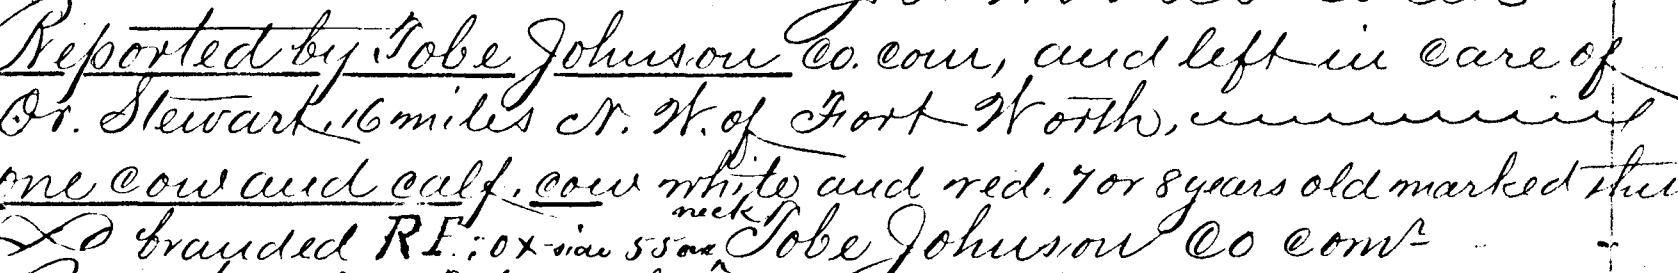 Reported by Tobe Johnson Co. com, and left in care of
Dr. Stewart, 16 miles N. W. of Fort Worth,
one cow and calf. cow white and red. 7 or 8 years old marked thus
branded RF: ox side 55 on neck Tobe Johnson Co com